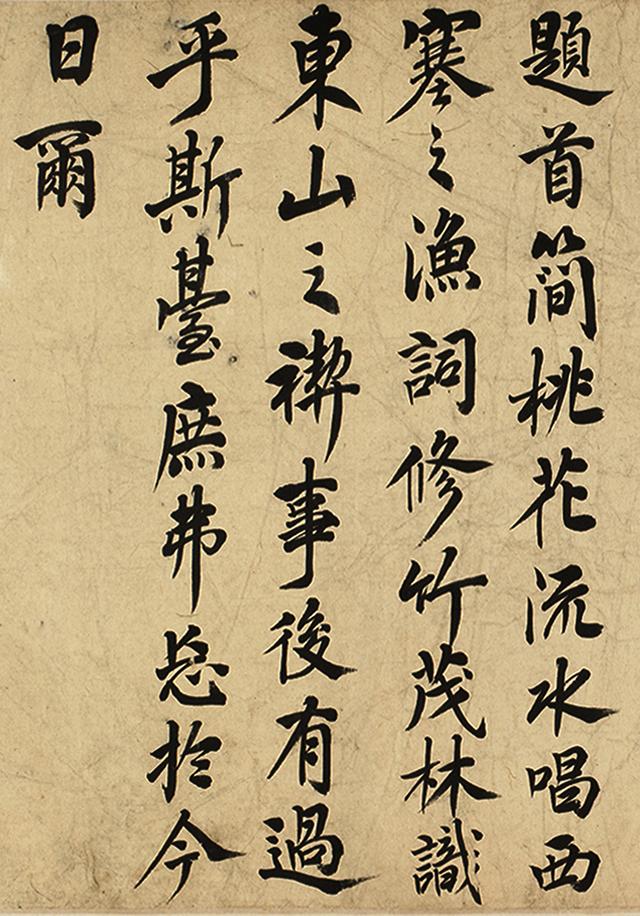 題首簡桃花流水唱西
塞之漁詞修竹茂林識
東山之禊事後有過
乎斯臺庶弗忘於今
日爾